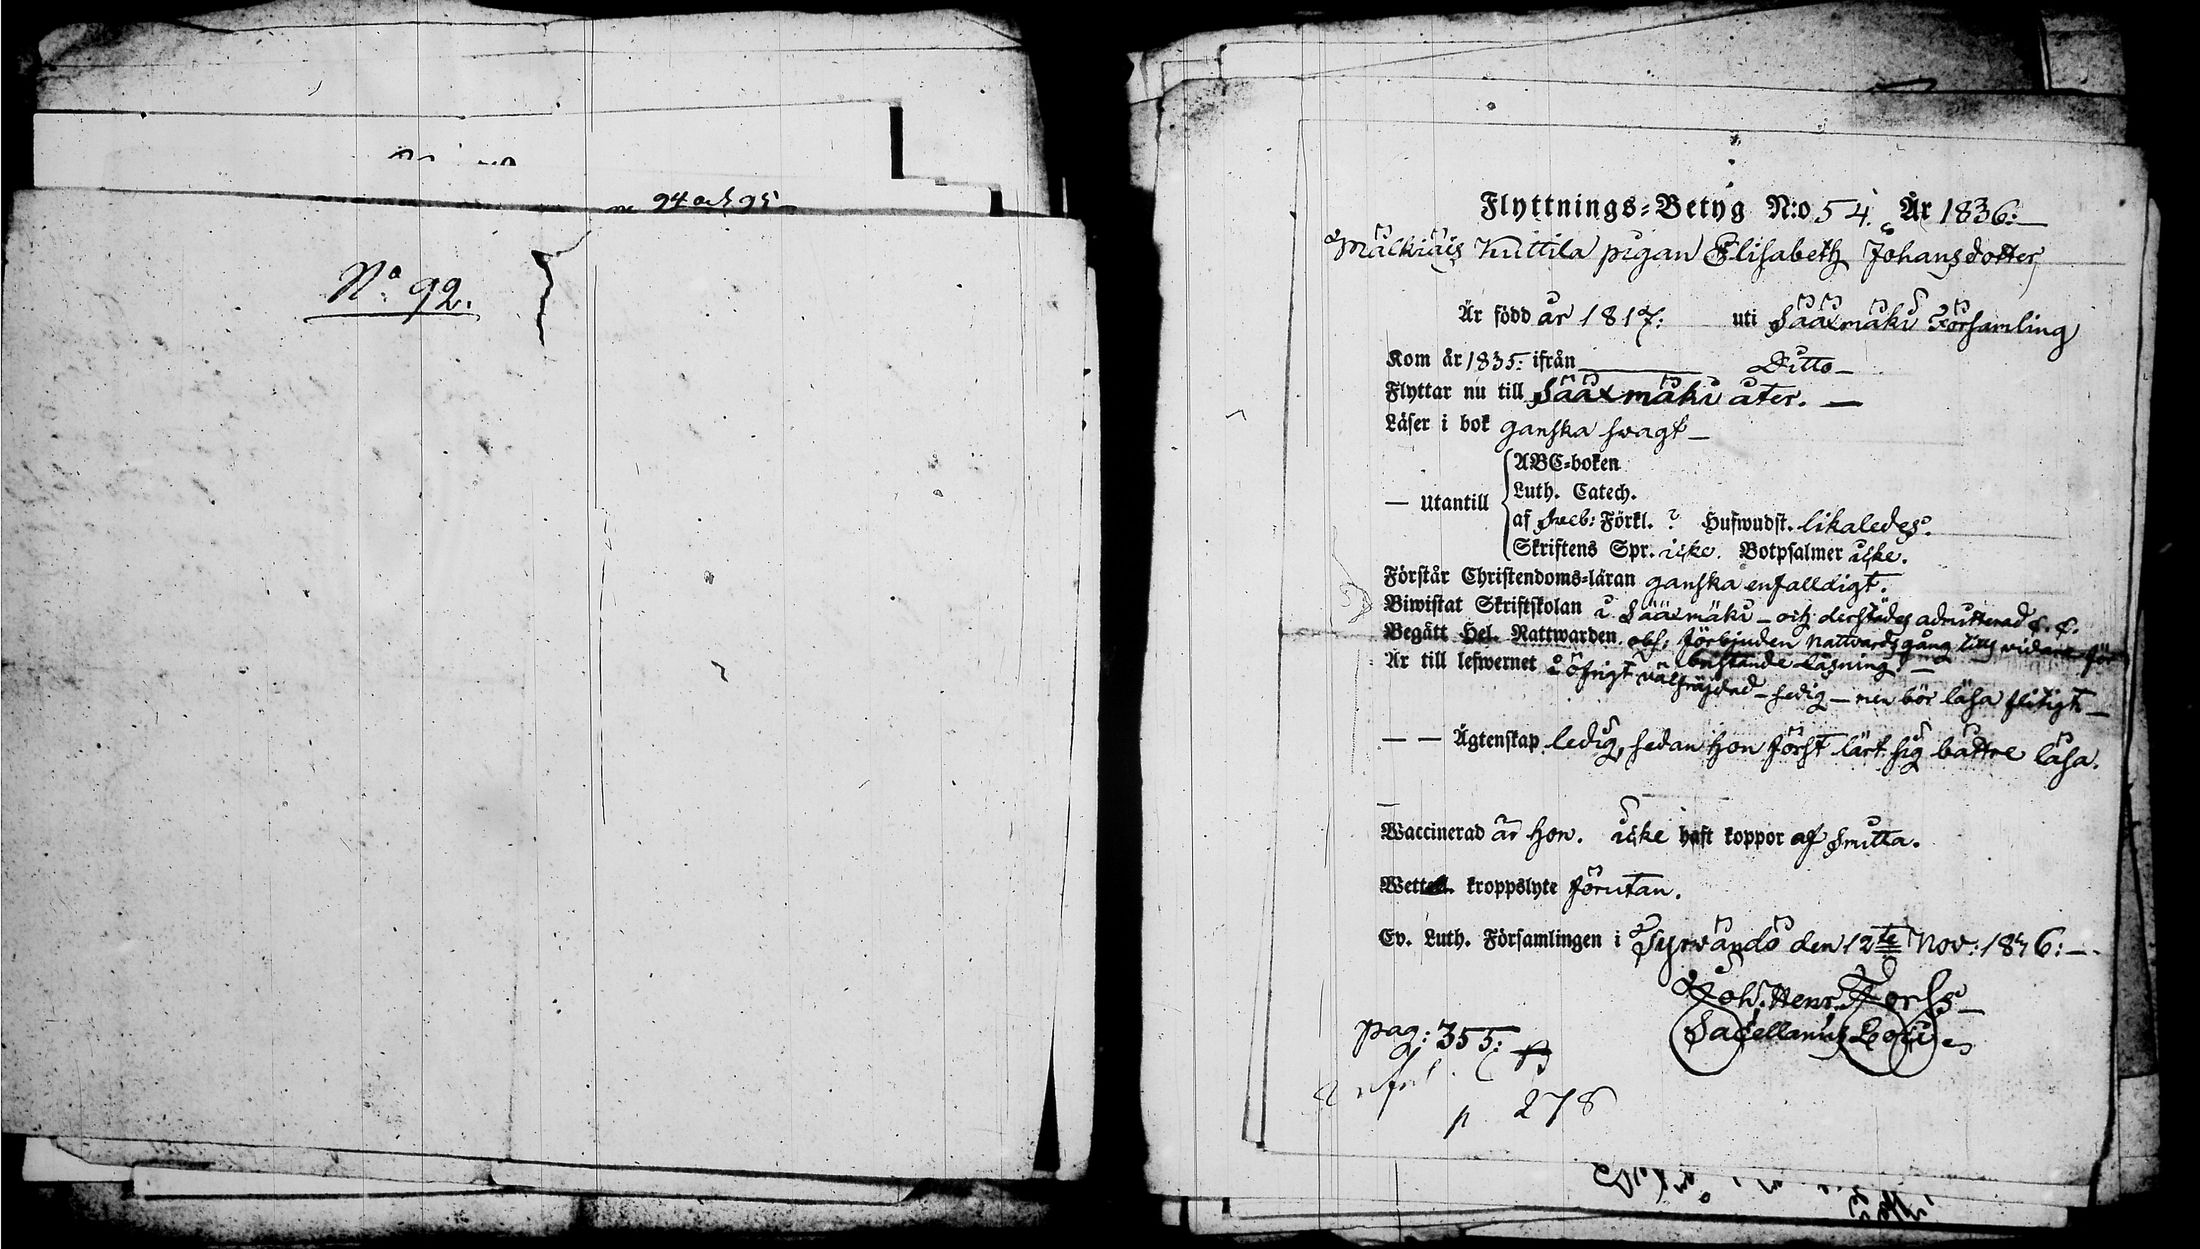 94 och 95
No 92.
Flyttnings-Betyg N:o 54. År 1836:
Mälkiäis Kuttila pigan Elisabeth Johansdotter
Är född år 1817: uti Sääxmäki Församling
Kom år 1835: ifrån Ditto
Flyttar nu till Sääxmäki åter.
Läser i bok ganska svagt
— Utantill
ABC-boken
Luth. Catech.
af Sveb: Förkl. ? Hufwudst. likaledes.
Skriftens Spr. icke. Botpsalmer icke.
Förstår Christendoms-läran ganska enfalldigt.
Biwistat Skriftskolan i Sääxmäki – och derstädes admitterad
Begått Hel. Nattwarden. obs, förbjuden Nattvardsgång tills vidare för
bristande Läsning.
Är till lefwernet i öfrigt välfräjdad – sedig – men bör läsa flitigt
— — Ägtenskap ledig, sedan hon först lärt sig bättre läsa.
Waccinerad är hon. icke haft koppor af smitta.
Wett kroppslyte förutan.
Ev. Luth. Församlingen i Tyrvändö den 12te Nov: 1836:
Joh. Henr. Forss
Sacellanus Loci
pag: 355:
p 278